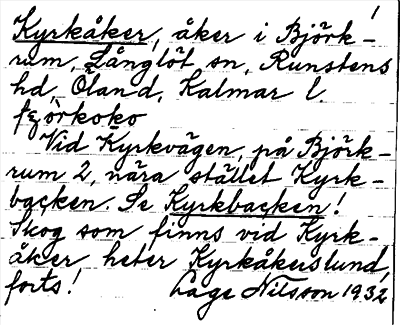 Kyrkåker, åker i Björk-
rum, Långlöt sn, Runstens
hd, Öland, Kalmar l.
örkoko
Vid Kyrkvägen, på Björk-
rum 2, nära stället Kyrk-
backen. Se Kyrkbacken!
Skog som finns vid Kyrk-
åker heter Kyrkåkerslund,
forts! Lage Nilsson 1932